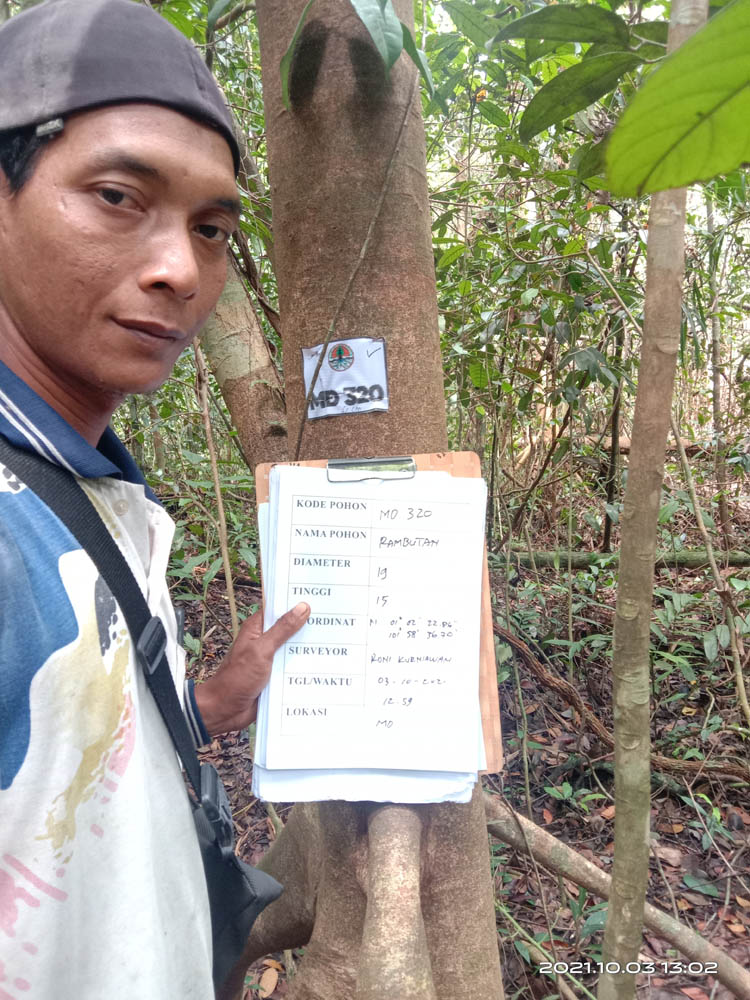 MD 320
KODE POHON MD 320
NAMA POHON RAMBUTAN
DIAMETER 19
TINGGI 15
ORDINAT N 01° 02' 22.86"
101° 58' 36.70"
SURVEYOR RONI KURNIAWAN
TGL/WAKTU 03-10-202
12.59
LOKASI MD
2021.10.03 13:02